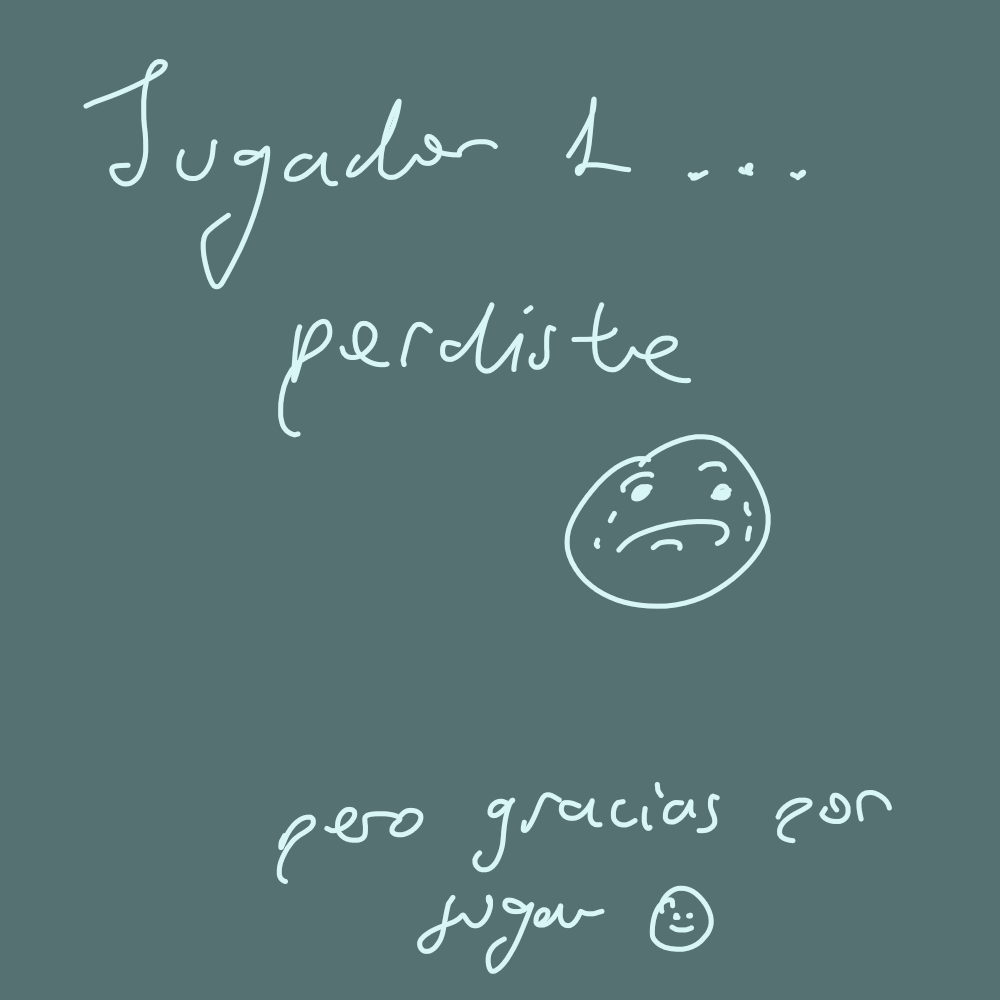 Jugador 1 ...
perdiste
pero gracias por
jugar